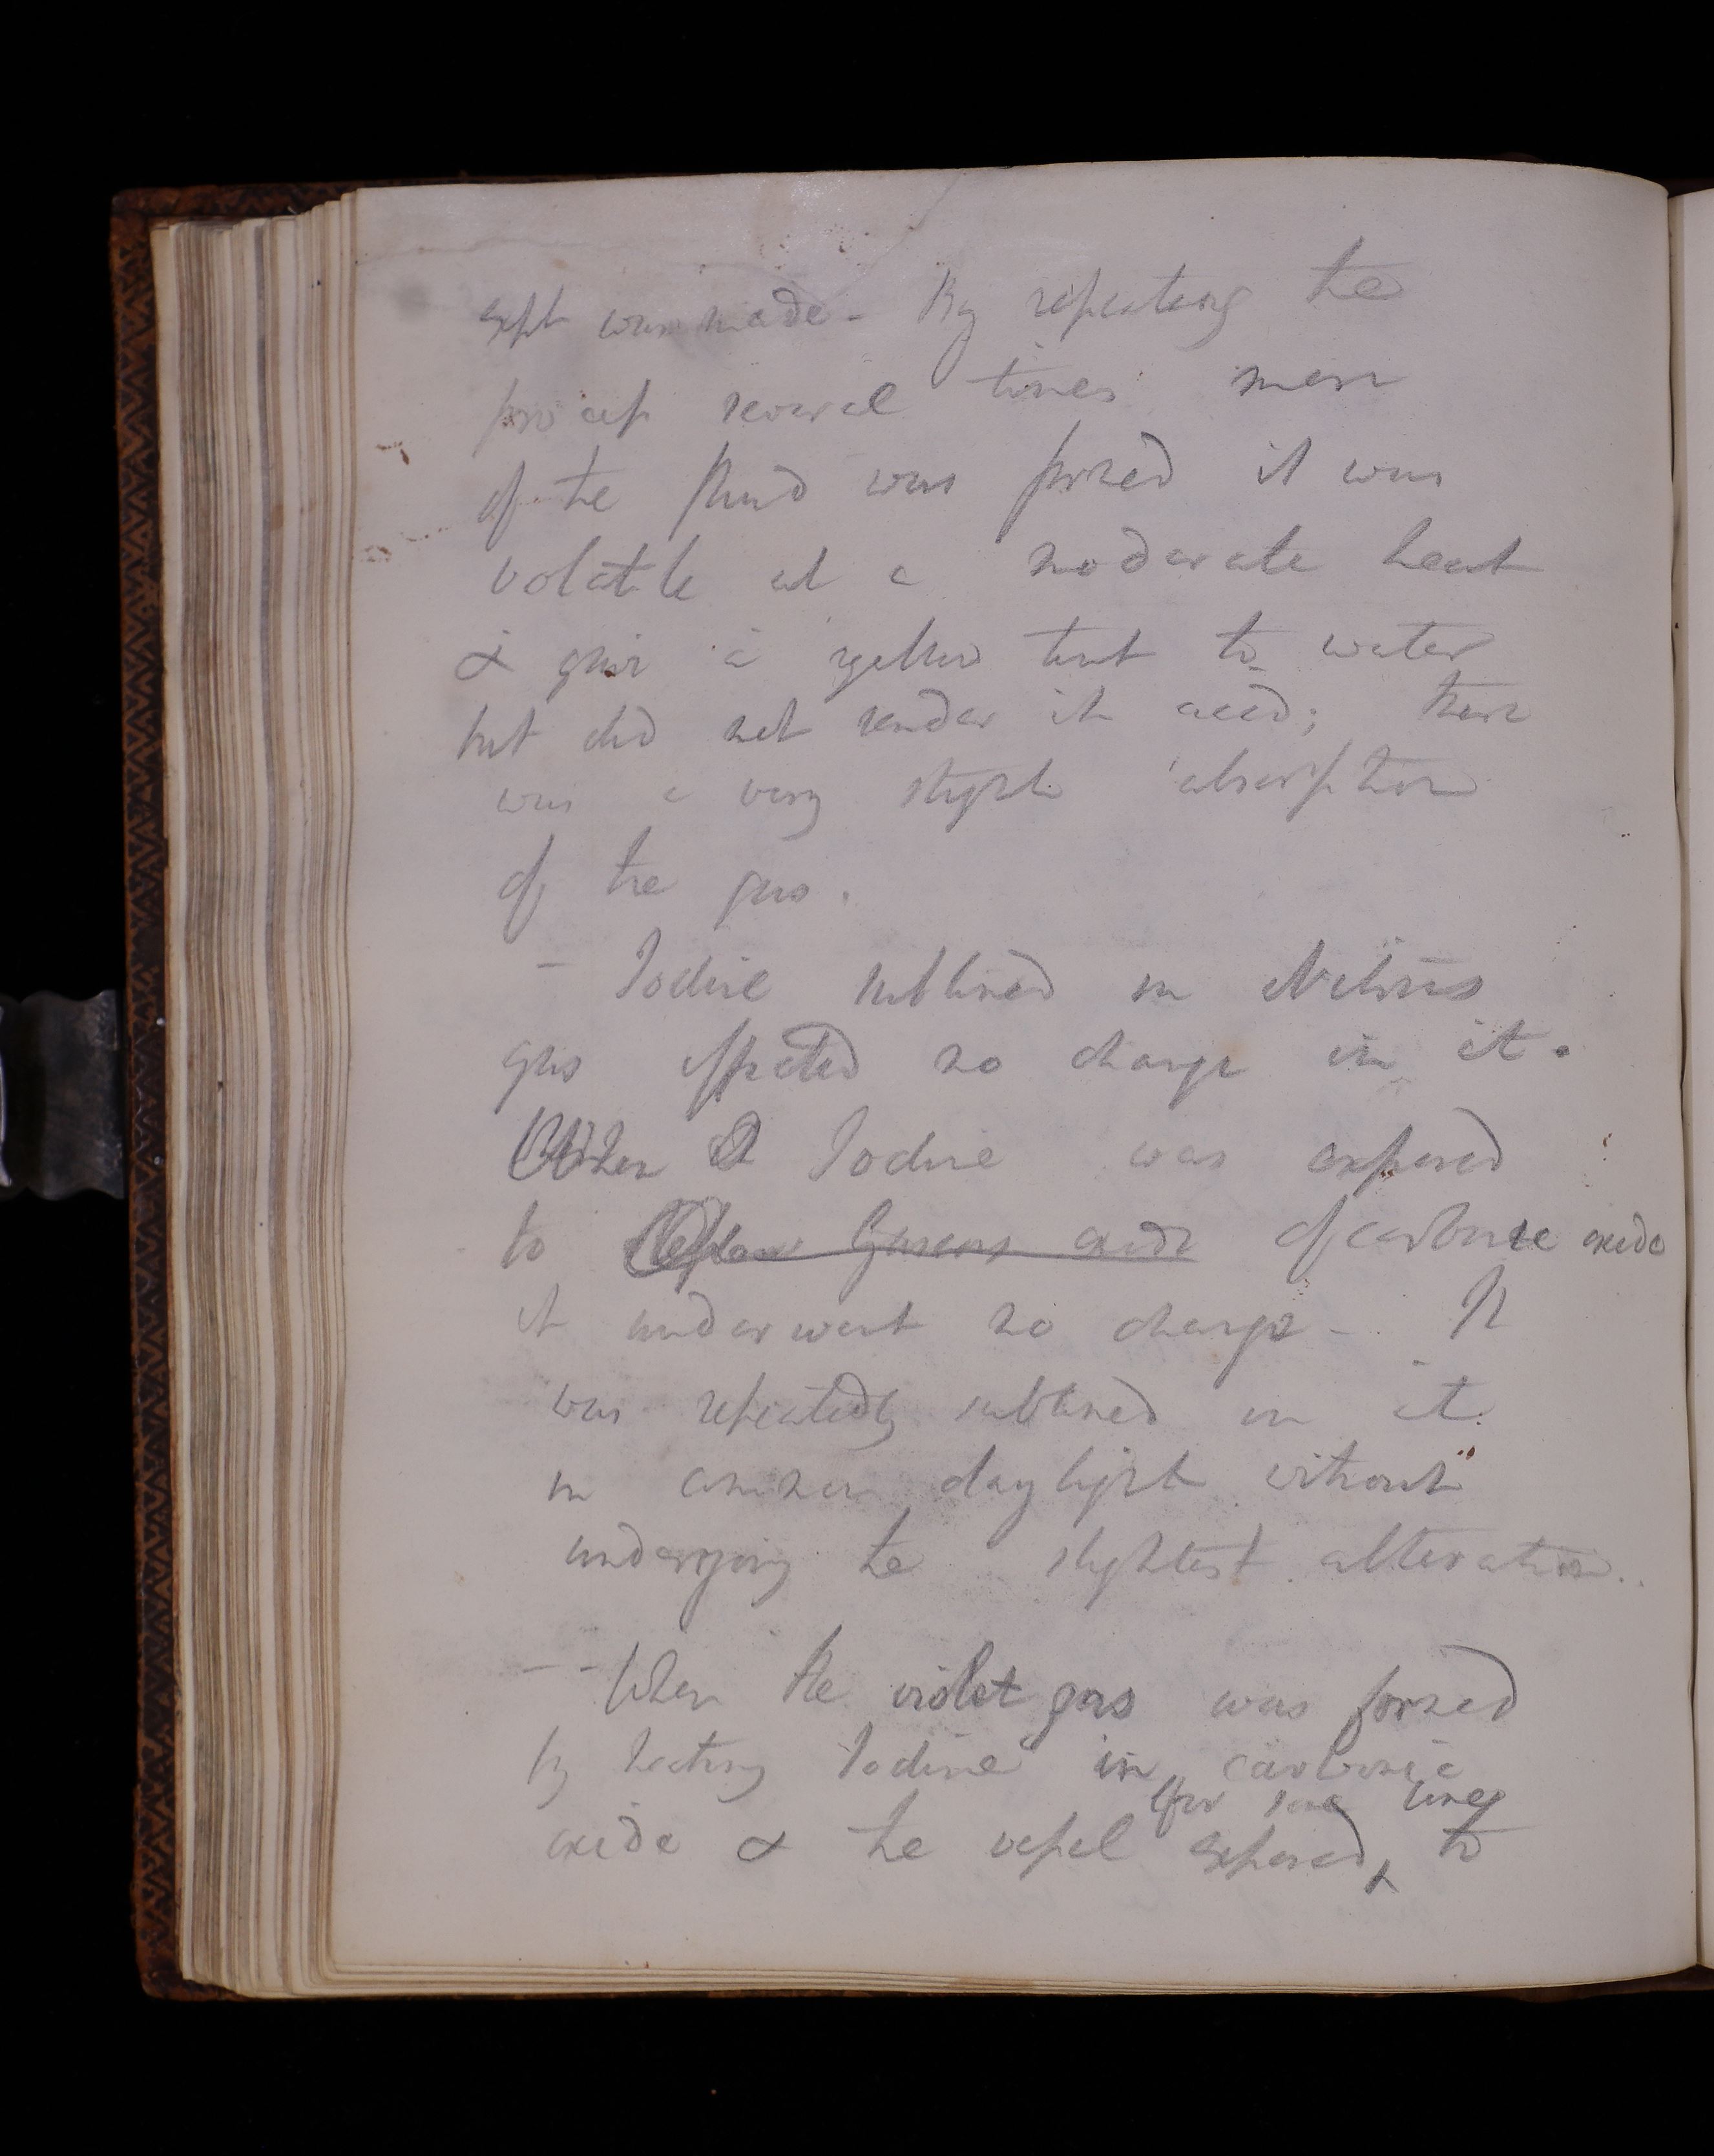 expt was made - By repeating the
process several times more
of the fluid was formed it was
volatile at a moderate heat
& gave a yellow tint to water
but did not render it acid; there
was a very slight absorption
of the gas.
- Iodine sublimed in Nitrous
gas effected no change in it.
When Iodine was exposed
to Gaseous oxide of carbonic oxide
it underwent no change - It
was repeatedly sublimed in it
in common day light without
undergoing the slightest alteration..
-- When the violet gas was formed
by heating Iodine in carbonic
for some time
oxide & the vessel exposed, to